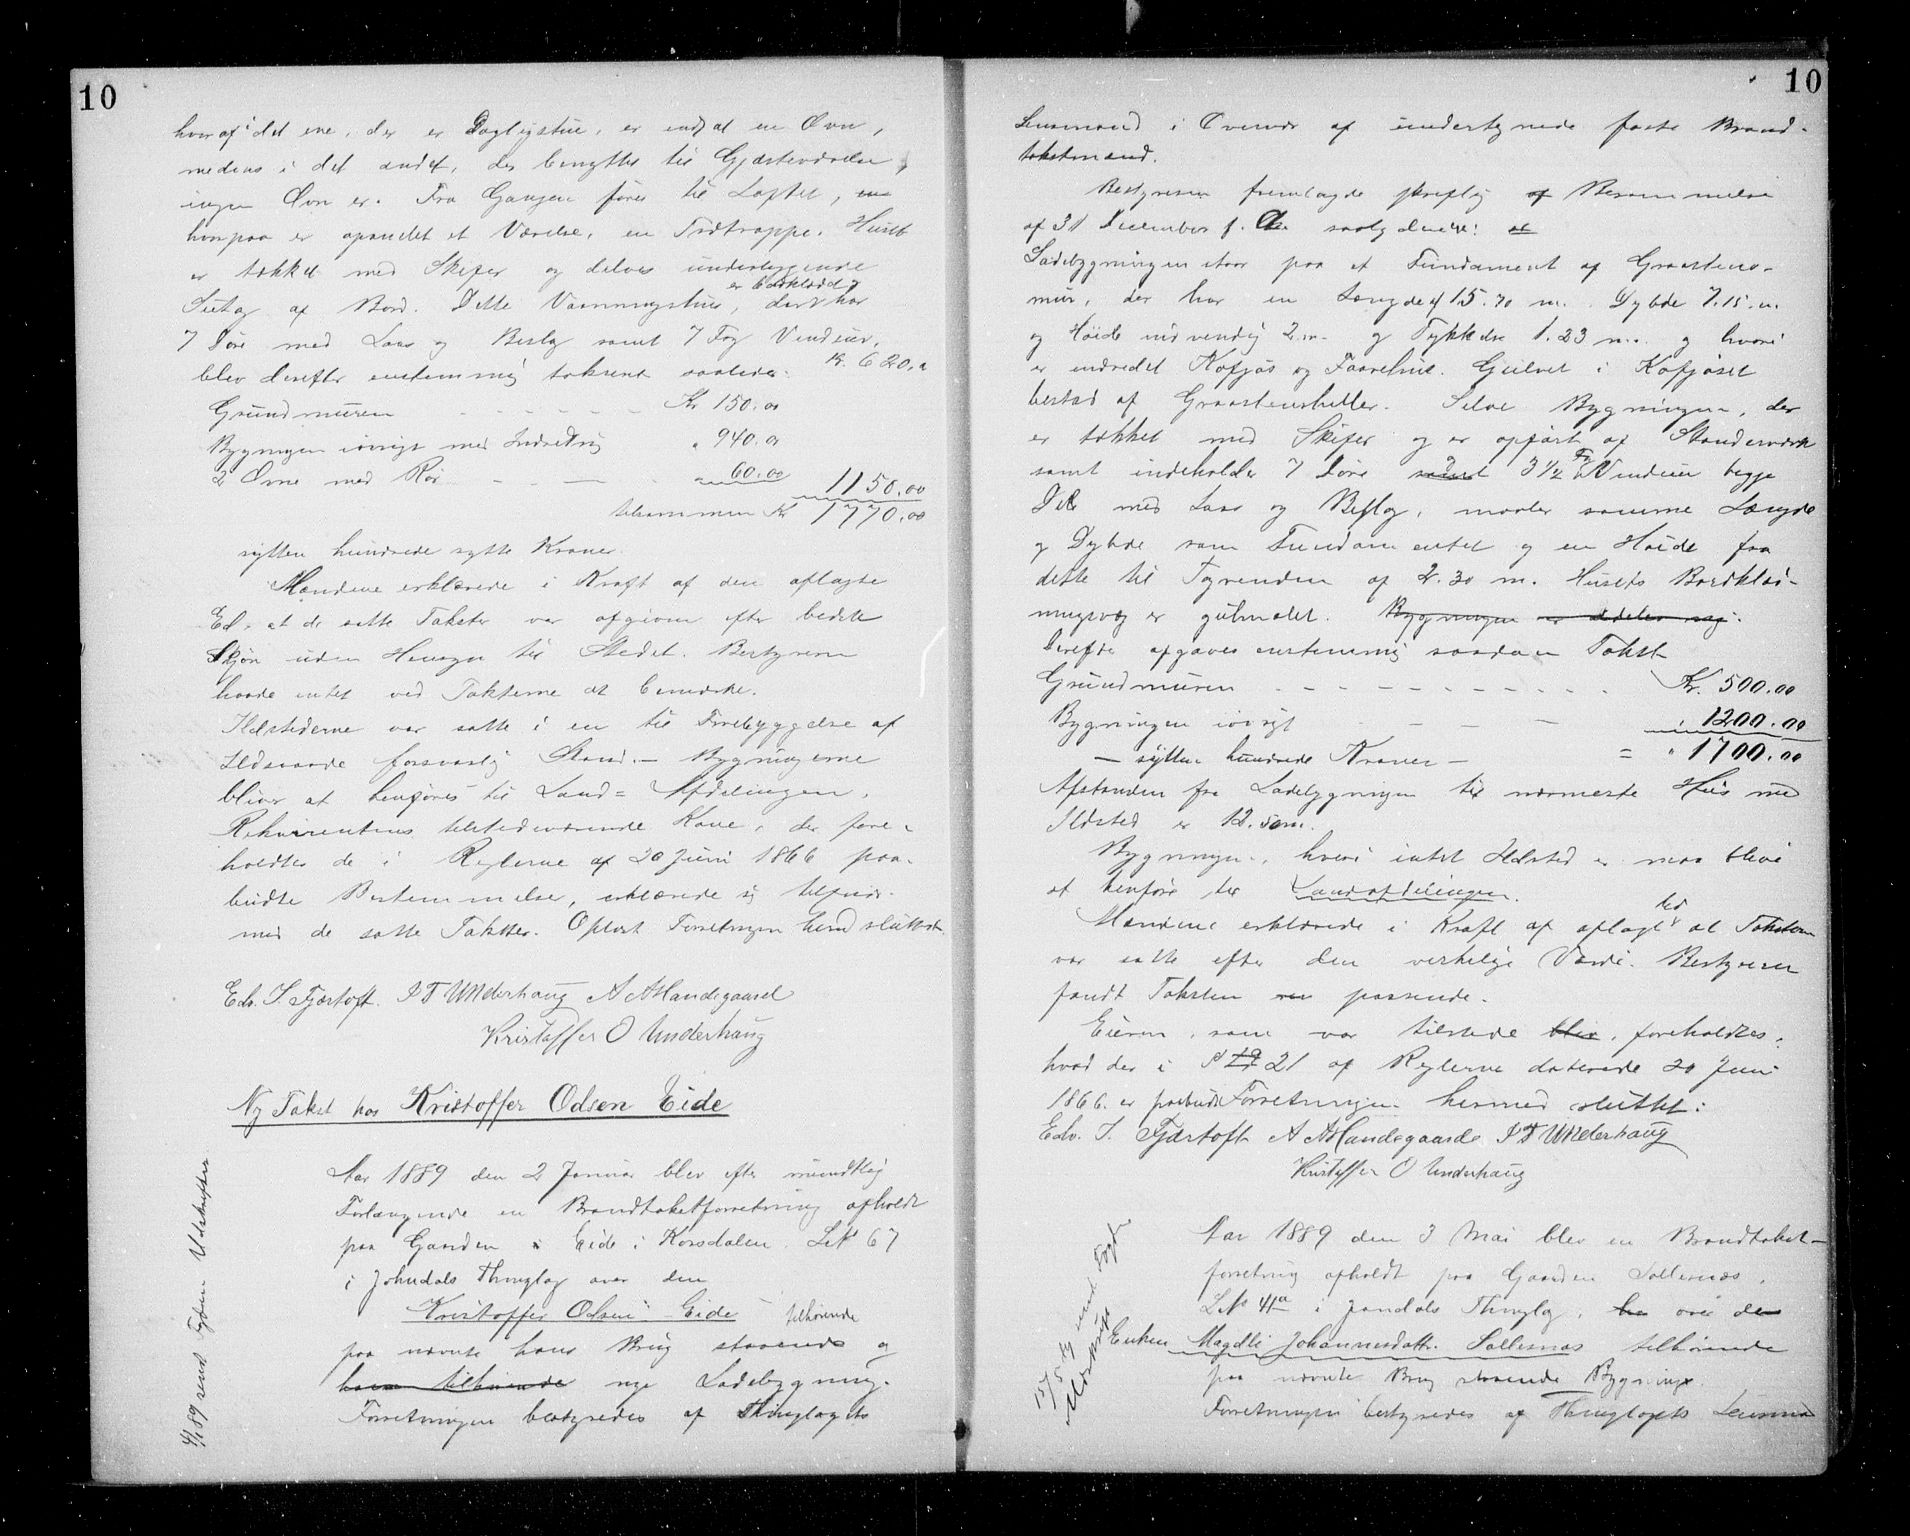 10
hvoraf i det ene, der er Dagligstue, er indsat en Ovn,
medens i det andet, der benyttes til Gjæsteværelse,
ingen Ovn er. Fra Gangen fører til Loftet,
hvorpaa er apteret et Værelse, en Trætrappe. Huset
er tækket med Skifer og delvis underliggende
Sutag af Bord. Dette Vaaningshus, er bordklædt, der har
7 Døre med Laas og Beslag samt 7 Fag Vinduer,
blev derefter enstemmig takseret saaledes: Kr. 620,
Grundmuren - - - - - - Kr 150.00
Bygningen iøvrigt med Indredning " 940.00
2 Ovne med Rør - - - - " 60.00 1150.00
tilsammen Kr 1770.00
sytten hundrede sytti Kroner.
Mændene erklærede i Kraft af den aflagte
Ed, at de satte Takster var afgivne efter bedste
Skjøn uden Hensyn til Stedet. Bestyreren
havde intet ved Taksterne at bemærke.
Ildstederne var satte i en til Forebyggelse af
Ildsvaade forsvarlig Stand. — Bygningerne
bliver at henføres til Land= Afdelingen.
Rekvirentens tilstedeværende Kone, der fore-
holdtes de i Reglerne af 20 Juni 1866 paa-
budte Bestemmelser, erklærede sig tilfreds
med de satte Takster. Oplæst Forretningen hermed sluttet
Edv. S. Fjærtoft. P T Underhaug A A Mandsgaard
Kristoffer O Underhaug
Ny Takst hos Kristoffer Odsen Eide
4/1 89 send Fogden Udskrifter
Aar 1889 den 2 Januar blev efter mundtlig
Forlangende en Brandtakstforretning afholdt
paa Gaarden Eide i Korsdalen LN 67
i Johndals Thinglag over den
Kristoffer Odsen Eide tilhørende
paa nævnte hans Brug staaende og
hvem tilhørende nye Ladebygning.
Forretningen bestyredes af Thinglagets
10
Lensmand i Overvær af undertegnede faste Brand-
takstmænd.
Bestyreren fremlagde skriftlig af Berammelse
af 31 December f. A. saalydende:
Ladebygningen staar paa et Fundament af Graastens-
mur, der har en Længde af 15.70 m. Dybde 7.15 m.
og Høide indvendig 2 m. og Tykkelse 1.23 m. og hvori
er indredet Kofjøs og Faarehus. Gulvet i Kofjøset
bestaar af Graastensheller. Selve Bygningen, der
er tækket med Skifer og er opført af Stenderværk
samt indeholder 7 Døre og 3 1/2 Fag Vinduer begge
Dele med Laas og Beslag, maaler samme Længde
og Dybde som Fundamentet og en Høide fra
dette til Gavlenden af 2.30 m. Husets Bordklæd-
ningsvæg er gulmalet. Bygningen er
Derefter afgaves enstemmig saadan Takst
Grundmuren - - - - - - - - - - Kr. 500.00
Bygningen iøvrigt - - - - " 1200.00
— sytten hundrede Kroner — = " 1700.00
Afstanden fra Ladebygningen til nærmeste Hus med
Ildsted er 12.50 m.
Bygningen, hvori intet Ildsted er, maa blive
at henføre til Landafdelingen.
Mændene erklærede i Kraft af aflagt Ed at Taksten
var satte efter den virkelige Værdi. Bestyreren
fandt Taksten passende.
Eieren, som var tilstede blev, foreholdtes,
hvad der i § 21 af Reglerne daterede 20 Juni
1866 er paabudt. Forretningen hermed sluttet:
Edv. S. Fjærtoft A A Mandsgaard P T Underhaug
Kristoffer O Underhaug
15/5 89 sendt Fogd
Udskrift
Aar 1889 den 3 Mai blev en Brandtakst-
forretning afholdt paa Gaarden Sollesnæs
LN 41a i Jondals Thinglag, over de
Enken Magdli Johannesdatter Sollesnæs tilhørende
paa nævnte Brug staaende Bygninger.
Forretningen bestyredes af Thinglagets Lensmand